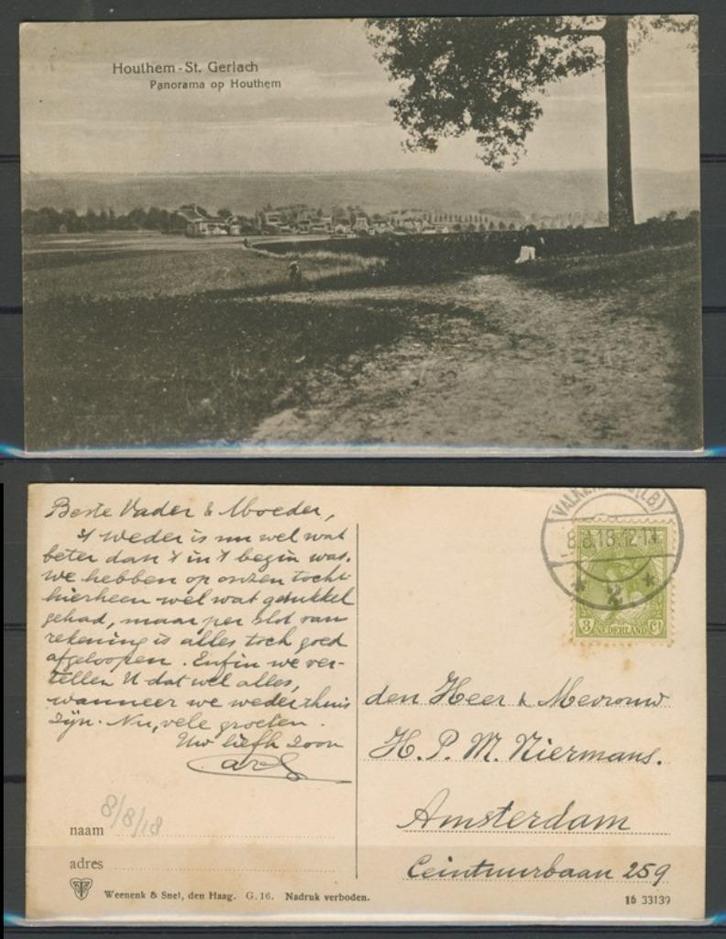 Houthem - St. Gerlach
Panorama op Houthem
Beste Vader & Moeder,
't Weder is nu wel wat
beter dan 't in 't begin was.
We hebben op onzen tocht
hierheen wel wat gesukkel
gehad, maar per slot van
rekening is alles toch goed
afgeloopen. Enfin we ver-
tellen U dat wel alles,
wanneer we weder thuis
zijn. Nu, vele groeten.
Uw liefh. Zoon
8/8/18
naam
adres
Weenenk & Snel, den Haag. G. 16. Nadruk verboden.
(LB)
8.8.18.12-1
2
3 NEDERLAND Ct
den Heer & Mevrouw
H. P. M. Niermans.
Amsterdam
Ceintuurbaan 259
16 33139